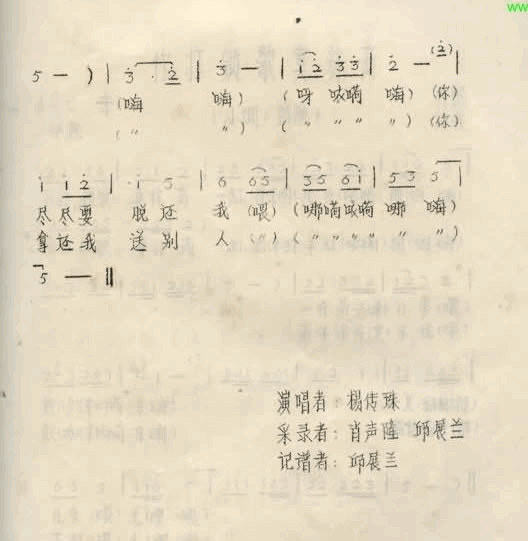 ww
5 — ) | 3̇ · 2̇ | 3̇ — | i̇ 2̇ 3̇ 3̇ | 2̇ — (2̇) |
(嗨 嗨) (呀 咳嗬 嗨) (你)
(〃 〃) (〃 〃 〃 〃) (你)
i̇ i̇ 2̇ | i̇ 5 | 6 6 5 | 3 5 6 i̇ | 5 3 5 |
尽尽要 脱还 我 (喂) (哪嗬咳嗬 哪 嗨)
拿还我 送别 人 (〃) (〃 〃 〃 〃 〃 〃)
5 — ‖
演唱者：杨传珠
采录者：肖声隆 邱展兰
记谱者：邱展兰